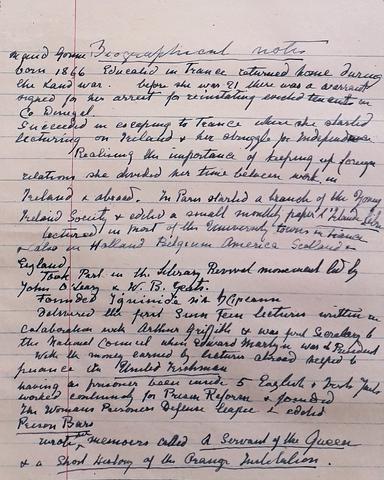 Maud Gonne Biographical notes
born 1866 Educated in France returned home during
the Land war. before she was 21 there was a warrant
signed for her arrest for reinstating evicted tenants in
Co Donegal.
Succeeded in escaping to France where she started
lecturing on Ireland & her struggle for Independence
Realising the importance of keeping up foreign
relations she divided her time between work in
Ireland & abroad. In Paris started a branch of the Young
Ireland Society & edited a small monthly paper L'Irlande Libre
Lectured in most of the University towns in France
& also in Holland Belgium America Scotland &
England
Took Part in the Literary Revival movement led by
John O'Leary & W. B. Yeats.
Founded Inginide na hEireann
Delivered the first Sinn Fein lectures written in
colaboration with Arthur Griffith & was first Secretary to
the National Council when Edward Martyn was President
With the money earned by lectures abroad helped to
finance the United Irishman
having as prisoner been inside 5 English & Irish Jails
worked continually for Prison Reform & founded
The Womans Prisoners Defense league & edited
Prison Bars
wrote memoirs called A Servant of the Queen
& a Short History of the Orange Institution.